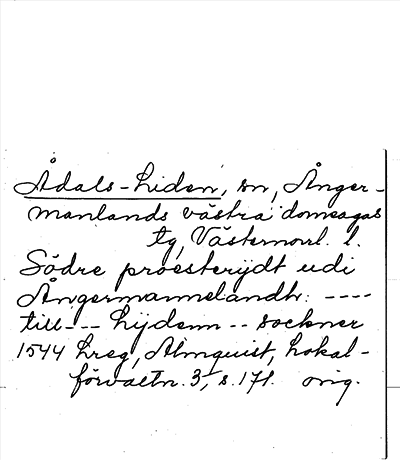 Ådals-Liden, sn, Ånger-
manlands västra domsagas
tg, Västernorrl. l.
Södre proesterijdt udi
Ångermannelandh: ----
till--- Lijdenn -- sockner
1544 hreg, Almquist, Lokal-
förvaltn. 3, s. 171. orig.